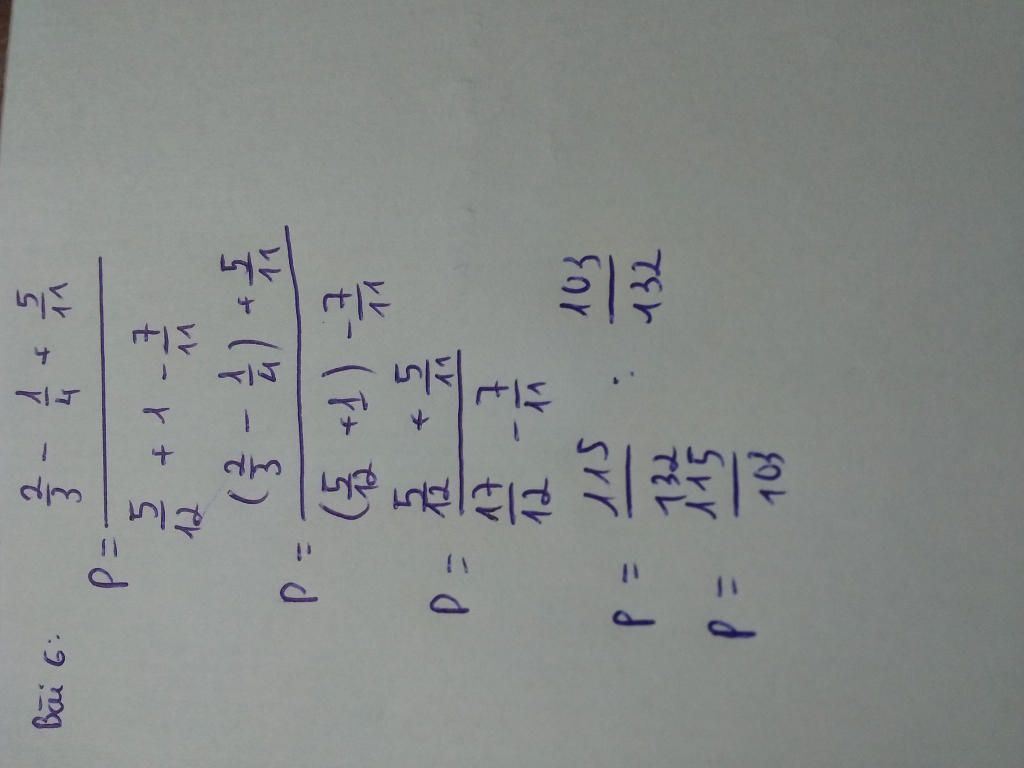 Bài 6:
P = \frac{\frac{2}{3} - \frac{1}{4} + \frac{5}{11}}{\frac{5}{12} + 1 - \frac{7}{11}}
P = \frac{(\frac{2}{3} - \frac{1}{4}) + \frac{5}{11}}{(\frac{5}{12} + 1) - \frac{7}{11}}
P = \frac{\frac{5}{12} + \frac{5}{11}}{\frac{17}{12} - \frac{7}{11}}
P = \frac{115}{132} : \frac{103}{132}
P = \frac{115}{103}